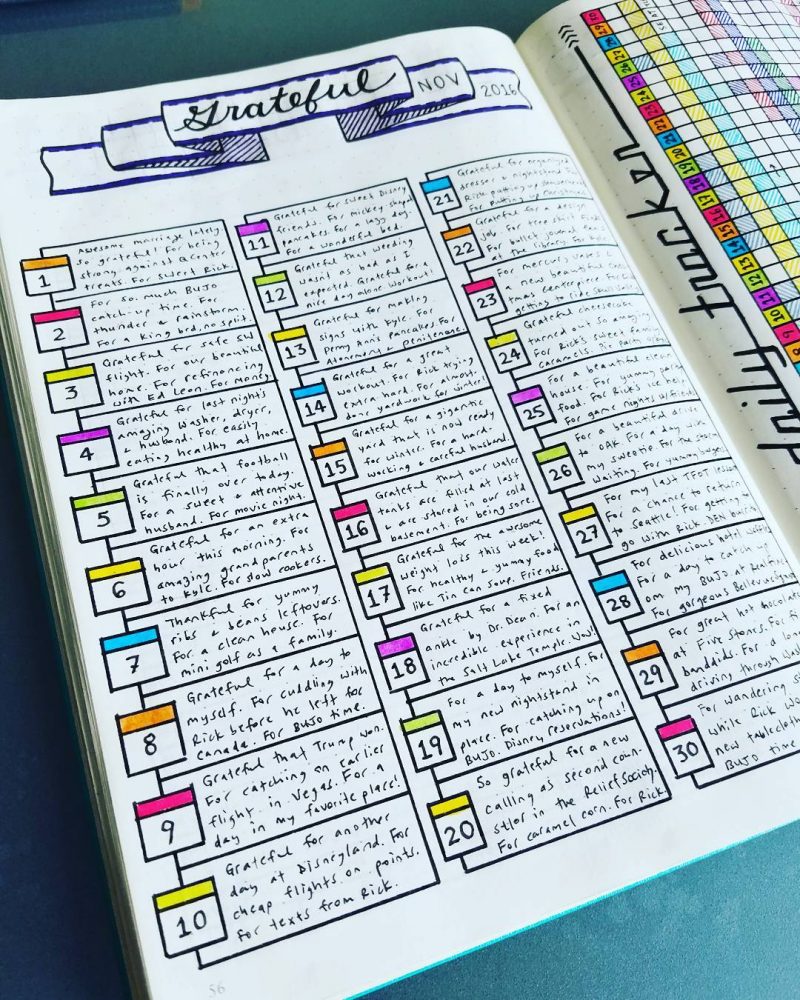 Grateful
NOV
2016
1
Awesome marriage lately
so grateful! For being
strong against a center
treats. For sweet Rick.
2
For so much BUJO
catch-up time. For
thunder & rainstorm.
For a king bed, no split.
3
Grateful for safe SW
flight. For our beautiful
home. For refinancing
with Ed Leon. For money.
4
Grateful for last night's
amazing washer, dryer,
& husband. For easily
eating healthy at home.
5
Grateful that football
is finally over today.
For a sweet & attentive
husband. For movie night.
6
Grateful for an extra
hour this morning. For
amazing grandparents
to Kylc. For slow cookers.
7
Thankful for yummy
ribs & beans leftovers.
For a clean house. For
mini golf as a family.
8
Grateful for a day to
myself. For cuddling with
Rick before he left for
Canada. For BUJO time.
9
Grateful that Trump won.
For catching an earlier
flight in Vegas. For a
day in my favorite place!
10
Grateful for another
day at Disneyland. For
cheap flights on points.
For texts from Rick.
11
Grateful for sweet Disney
friends. For mickey shaped
pancakes. For a lazy day.
For a wonderful bed.
12
Grateful that weeding
wasn't as bad as I
expected. Grateful for
nice day alone workout!
13
Grateful for making
signs with Kylc. For
Penny Ann's pancakes. For
atonement & penitence.
14
Grateful for a great
workout. For Rick trying
extra hard. For almost
done yardwork for winter!
15
Grateful for a gigantic
yard that is now ready
for winter. For a hard-
working & careful husband.
16
Grateful that our water
tanks are filled at last
& are stored in our cold
basement. For being sore.
17
Grateful for the awesome
weight loss this week!
For healthy & yummy food
like Tin Can Soup. Friends.
18
Grateful for a fixed
ankle by Dr. Dean. For an
incredible experience in
the Salt Lake Temple. Wow!
19
For a day to myself. For
my new nightstand in
place. For catching up on
BUJO. Disney reservations!
20
So grateful for a new
calling as second coun-
sllor in the Relief Society.
For caramel corn. For Rick.
21
Grateful for organized
dresser & nightstand. For
Rick putting up
For putting up
22
Grateful for a
job. For
For bullet journal
at the library. For
23
For
a new beautiful
tmas centerpiece. For
getting to ride
24
Grateful cheesecake
turned out so amazing
For Rick's sweet family
caramels.
25
For a beautiful clean
house. For yummy
food. For Rick's ice
For game nights w/
26
For a beautiful drive
to OAK. For a day with
my sweetie. For the
waiting. For yummy
27
For my last TFOT lesson
For a chance to return
to Seattle! For getting to
go with Rick. DEN
28
For delicious hotel
For a day to catch up
on my BUJO at
For gorgeous Bellevue
29
For great hot chocolate
at Five Stones. For
bandaids. For a long
driving through
30
For wandering
while Rick
new tablecloth
BUJO time
56
daily tracker
31
29
28
27
26
25
24
23
22
21
20
19
18
17
16
15
14
13
12
11
10
9
8